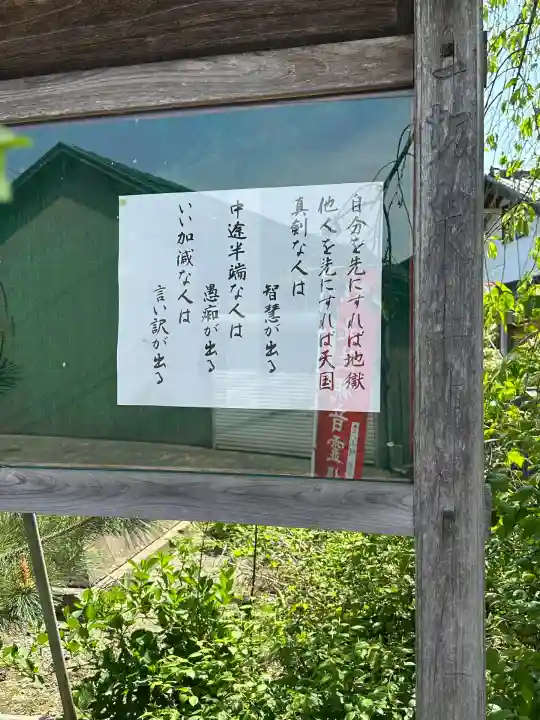 自分を先にすれば地獄
他人を先にすれば天国
真剣な人は
智慧が出る
中途半端な人は
愚痴が出る
いい加減な人は
言い訳が出る
音霊